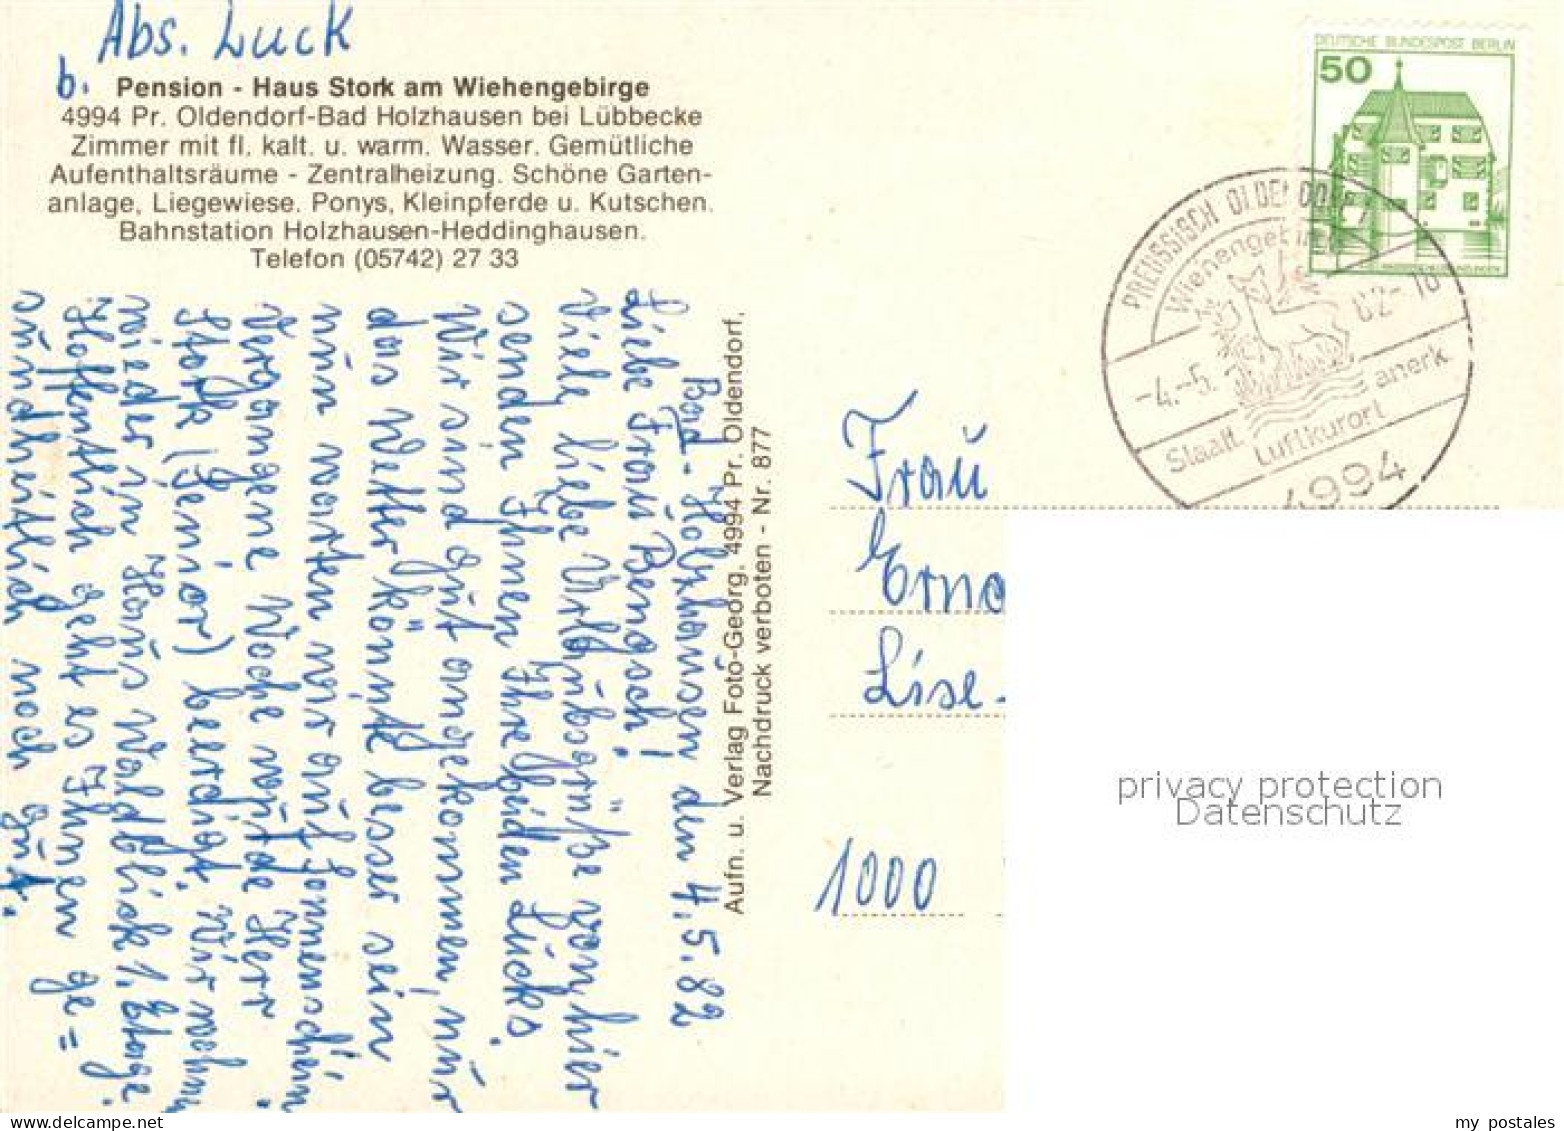 Abs. Luck
b. Pension - Haus Stork am Wiehengebirge
4994 Pr. Oldendorf-Bad Holzhausen bei Lübbecke
Zimmer mit fl. kalt. u. warm. Wasser. Gemütliche
Aufenthaltsräume - Zentralheizung. Schöne Garten-
anlage, Liegewiese. Ponys, Kleinpferde u. Kutschen.
Bahnstation Holzhausen-Heddinghausen.
Telefon (05742) 27 33
Bad-Holzhausen den 4.5.82
Liebe Frau Benasch!
Viele liebe Urlaubsgrüße von hier
senden Ihnen Ihre beiden Lucks.
Wir sind gut angekommen, nur
das Wetter könnte besser sein
nun warten wir auf Sonnenschein
Vergangene Woche wurde Herr
Stork (Senior) beerdigt. Wir wohnen
wieder im Haus Waldblick 1. Etage.
Hoffentlich geht es Ihnen ge=
sundheitlich noch gut.
Aufn. u. Verlag Foto-Georg, 4994 Pr. Oldendorf,
Nachdruck verboten - Nr. 877
DEUTSCHE BUNDESPOST BERLIN
50
PREUSSISCH OLDENDORF 1
Wiehengebirge
-4.-5. 82-18
Staatl. anerk.
Luftkurort
4994
Frau
Erna
Lise-
1000
privacy protection
Datenschutz
my postales